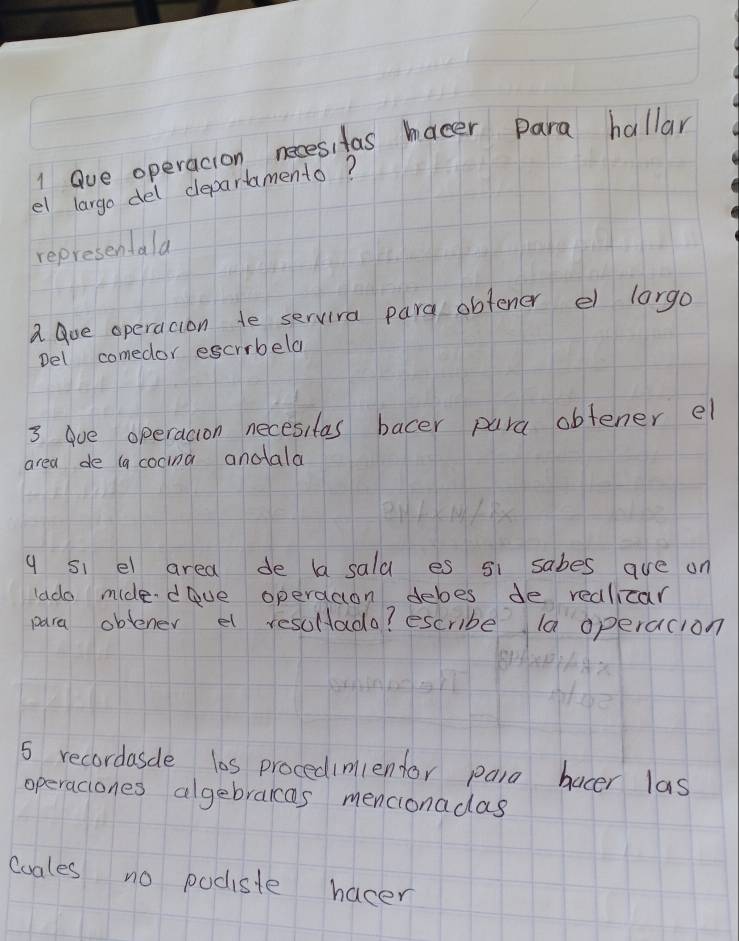 1 Que operacion necesitas hacer para hallar
el largo del departamento?
representala
2 Que operacion te servira para obtener el largo
Del comedor escrrbela
3 Que operacion necesitas hacer para obtener el
area de la cocina anotala
4 si el area de la sala es si sabes que on
lado mide. dQue operacion debes de realizar
para obtener el resultado? escribe la operacion
5 recordasde los procedimientor para hacer las
operaciones algebraicas mencionadas
Cuales no pudiste hacer